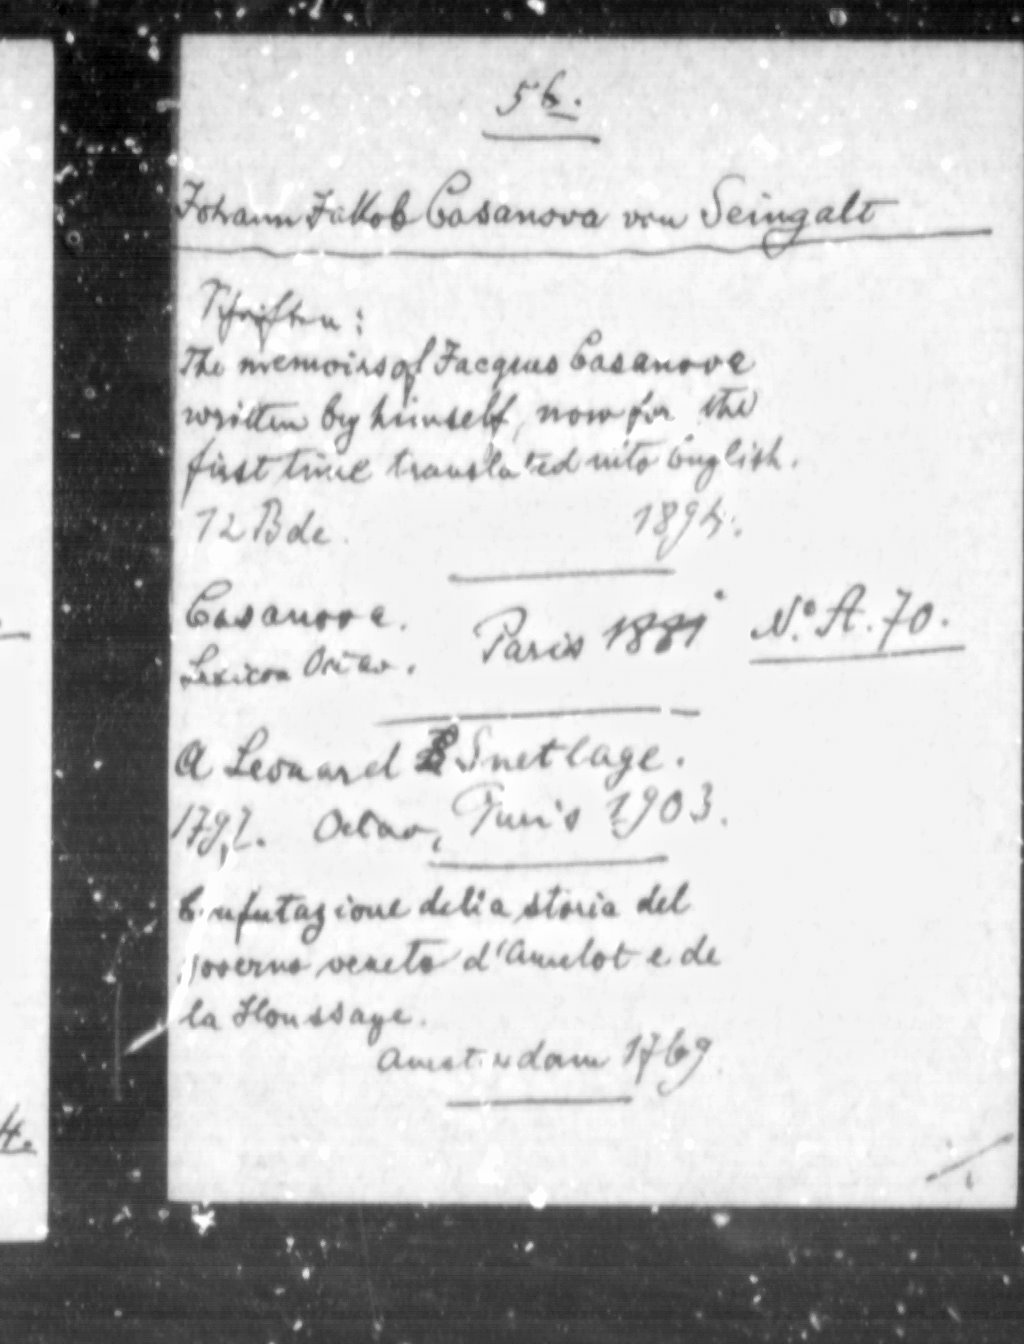 56.
Johann Jakob Casanova von Seingalt
Schriften:
The memoirs of Jacques Casanova
written by himself, now for the
first time translated into English.
12 Bde. 1894.
Casanova. Paris 1881 No. A. 70.
Lexicon Octav.
A Leonard Snetlage.
1797. Octav, Paris 1903.
Confutazione della storia del
governo veneto d'Amelot e de
la Houssaye.
Amsterdam 1769